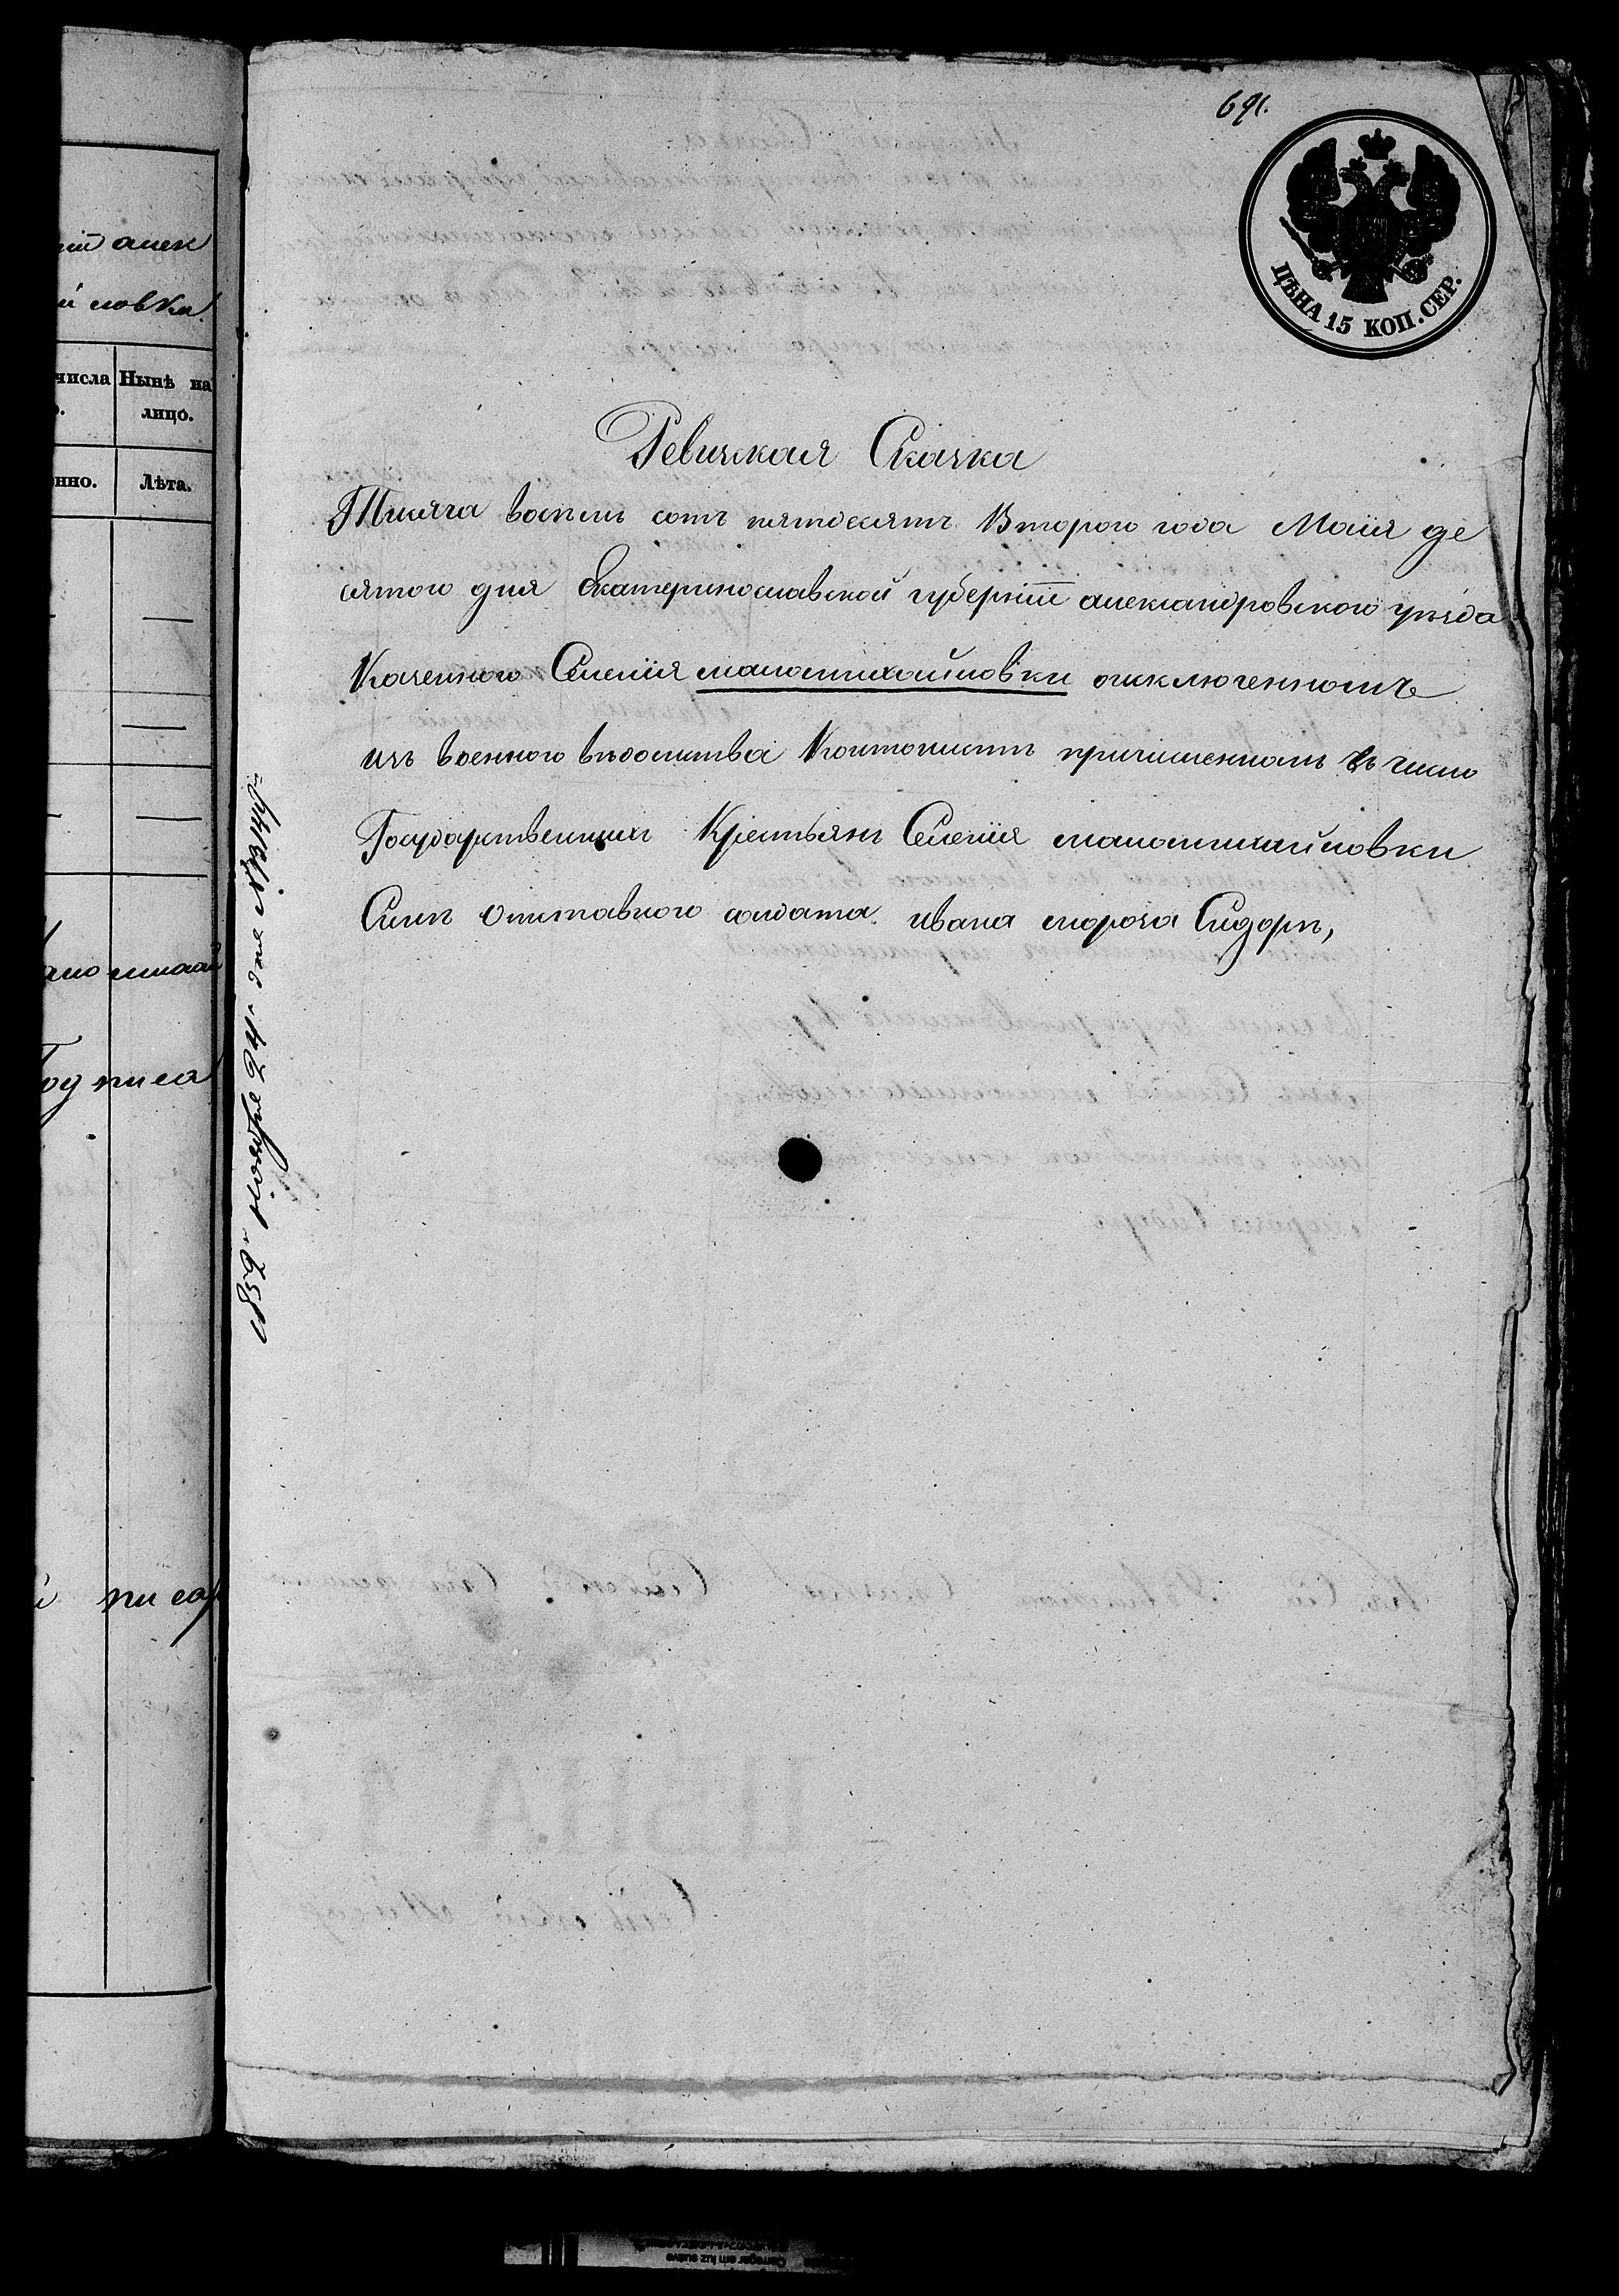 691.
ЦѢНА 15 КОП. СЕР.
Ревизкая Сказка
Тисяча восемь сотъ пятдесятъ Второго года Маія де
сятого дня Екатеринославской губерніи александровского уѣзда
Казенного Селенія маломихайловки оисключенномъ
изъ военного вѣдомства Кантонистѣ причисленномъ въ число
Государственныхъ Крестьянъ Селенія маломихайловки
Синѣ отставного солдата ивана мороза Сидорѣ,
1852го ноября 24го дня
ніи алек
й ловки
числа Нынѣ на
лицо.
нно. Лѣта.
писа
писар